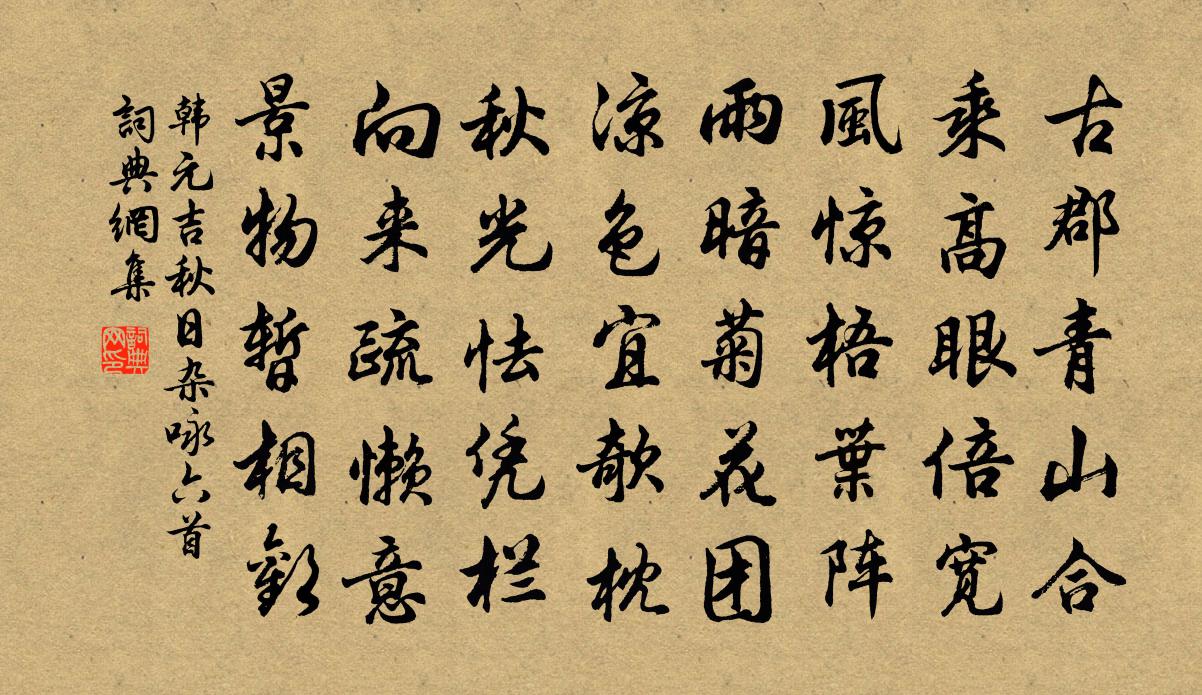 古郡青山合
乘高眼倍寛
風惊梧葉阵
雨暗菊花团
凉色宜欹枕
秋光怯凭栏
向来疏懒意
景物暂相歡
韩元吉秋日杂咏六首
詞典網集
詞典网印